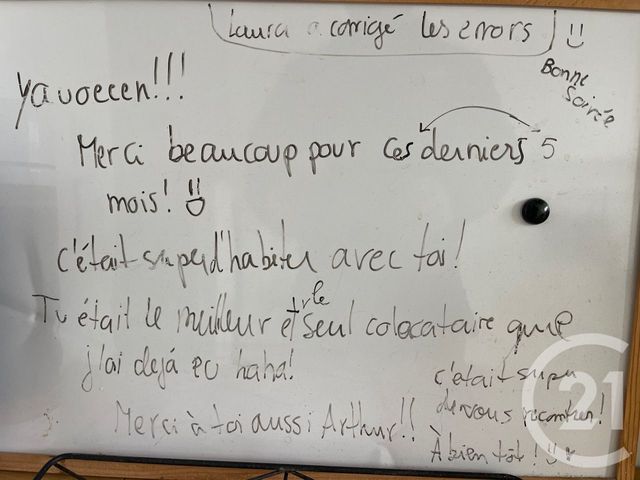 Laura a corrigé les errors
Bonne
Soirée
Yavoecen!!!
Merci beaucoup pour ces derniers 5
mois!
c'était super d'habiter avec toi!
Tu était le meilleur et le seul colocataire que
j'ai dejá eu haha!
c'était super
de vous rencontrer!
Merci à toi aussi Arthur!!
À bien tôt!
21